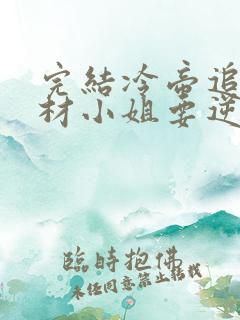 完結冷帝追
材小姐要逆
臨時抱佛
未经同意禁止转载